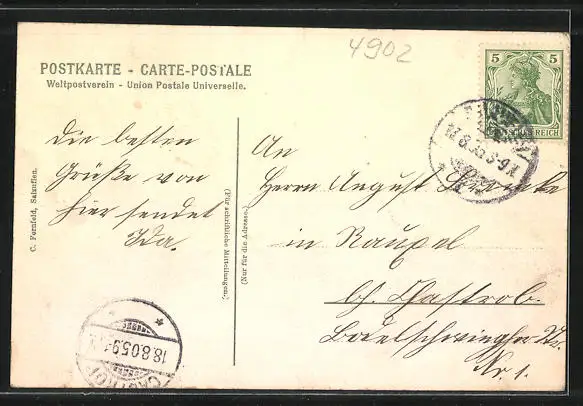 4902
POSTKARTE - CARTE-POSTALE
Weltpostverein - Union Postale Universelle.
5 5
DEUTSCHES REICH
Die besten
Grüße von
hier sendet
Ida.
An
Herrn August
in Rauxel
bh. Castrob.
Bodelschwingher
Nr. 1.
(Für schriftliche Mitteilungen.)
(Nur für die Adresse.)
C. Fernfeld, Salzuflen.
18.8.05.9
CASTROP